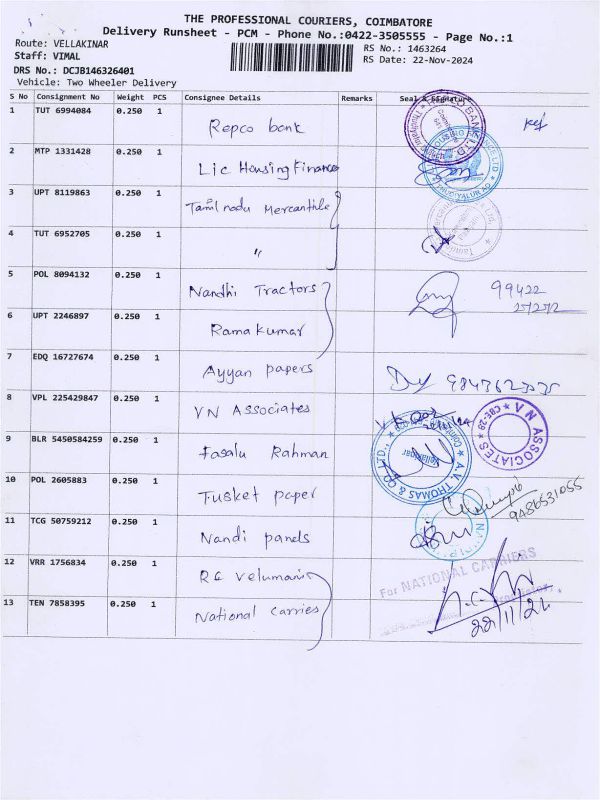 THE PROFESSIONAL COURIERS, COIMBATORE
Delivery Runsheet - PCM - Phone No.:0422-3505555 - Page No.:1
Route: VELLAKINAR
RS No.: 1463264
Staff: VIMAL
RS Date: 22-Nov-2024
DRS No.: DCJB146326401
Vehicle: Two Wheeler Delivery
S No Consignment No Weight PCS Consignee Details Remarks Seal & Signature
1 TUT 6994084 0.250 1 Repco bank
2 MTP 1331428 0.250 1 Lic Housing Finance
3 UPT 8119863 0.250 1 Tamil nadu Mercantile
4 TUT 6952705 0.250 1 "
5 POL 8094132 0.250 1 Nandhi Tractors 99422
6 UPT 2246897 0.250 1 Ramakumar
7 EDQ 16727674 0.250 1 Ayyan papers
8 VPL 225429847 0.250 1 VN Associates
VN ASSOCIATES * CBE-29 *
9 BLR 5450584259 0.250 1 Fasalu Rahman
A.V. THOMAS & CO LTD.,
10 POL 2605883 0.250 1 Tusket paper
11 TCG 50759212 0.250 1 Nandi panels
12 VRR 1756834 0.250 1 RC Velumani
For NATIONAL CARRIERS
13 TEN 7858395 1 0.250 National Carries
22/11/24